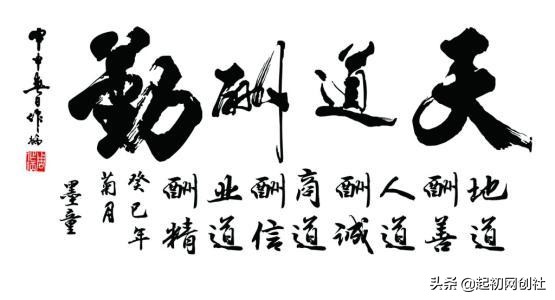 天道酬勤
地道
酬善
人道
酬诚
商道
酬信
业道
酬精
癸巳年
菊月
墨童
头条 @起初网创社